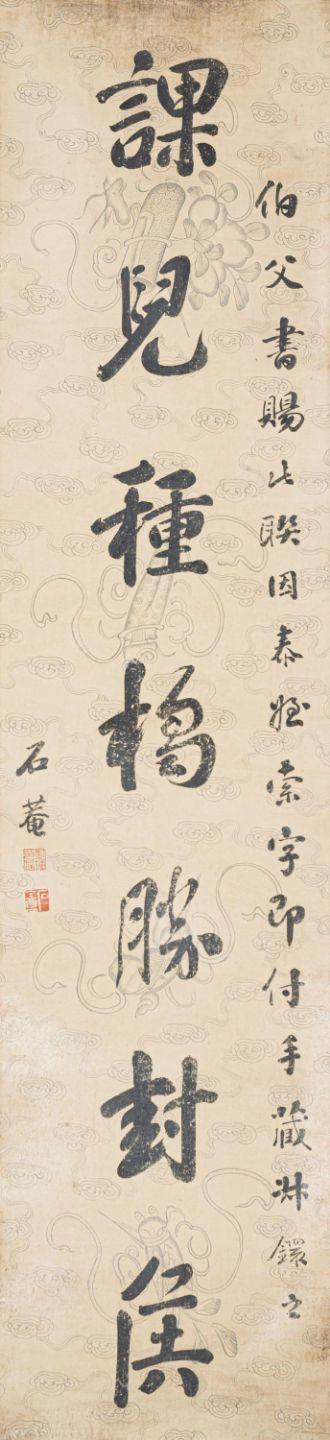 伯父書賜此聯因泰姪索字即付手藏叔鐶之
課兒種橘勝封侯
石菴